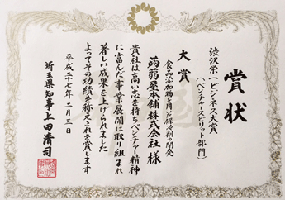 賞状
渋沢栄一ビジネス大賞
(ベンチャースピリット部門)
大賞
蒟蒻屋本舗株式会社様
貴社は高い志を持ちベンチャー精神
に富んだ事業展開に取り組まれ
著しい成果を上げられました
よってその功績を称え表彰します
平成二十七年二月三日
埼玉県知事上田清司